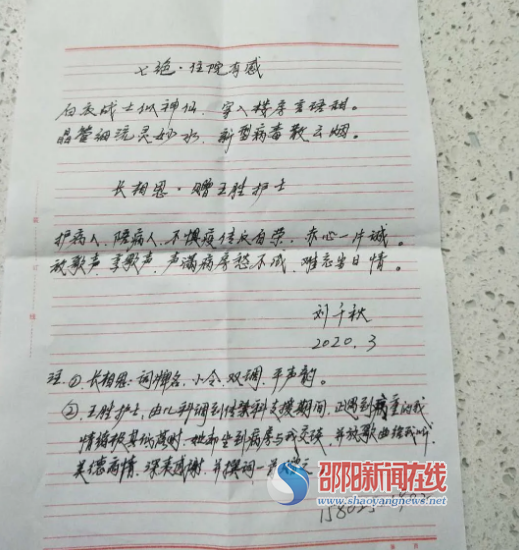 七绝·住院有感
白衣战士似神仙，穿入楼房言语甜。
晶莹细流灵妙水，新型病毒散云烟。
长相思·赠王胜护士
护病人，陪病人，不惧疫传反自荣，赤心一片诚。
放歌声，享歌声，声满病房愁不成，难忘当日情。
刘千秋
2020.3
注：①长相思：词牌名，小令，双调，平声韵。
②王胜护士，由儿科调到传染科支援期间，正遇到病重的我
情绪极其低落时，她都坐到病房与我交谈，并放歌曲给我听，
美德病情，深表感谢，并撰词一首
邵阳新闻在线
www.shaoyangnews.net